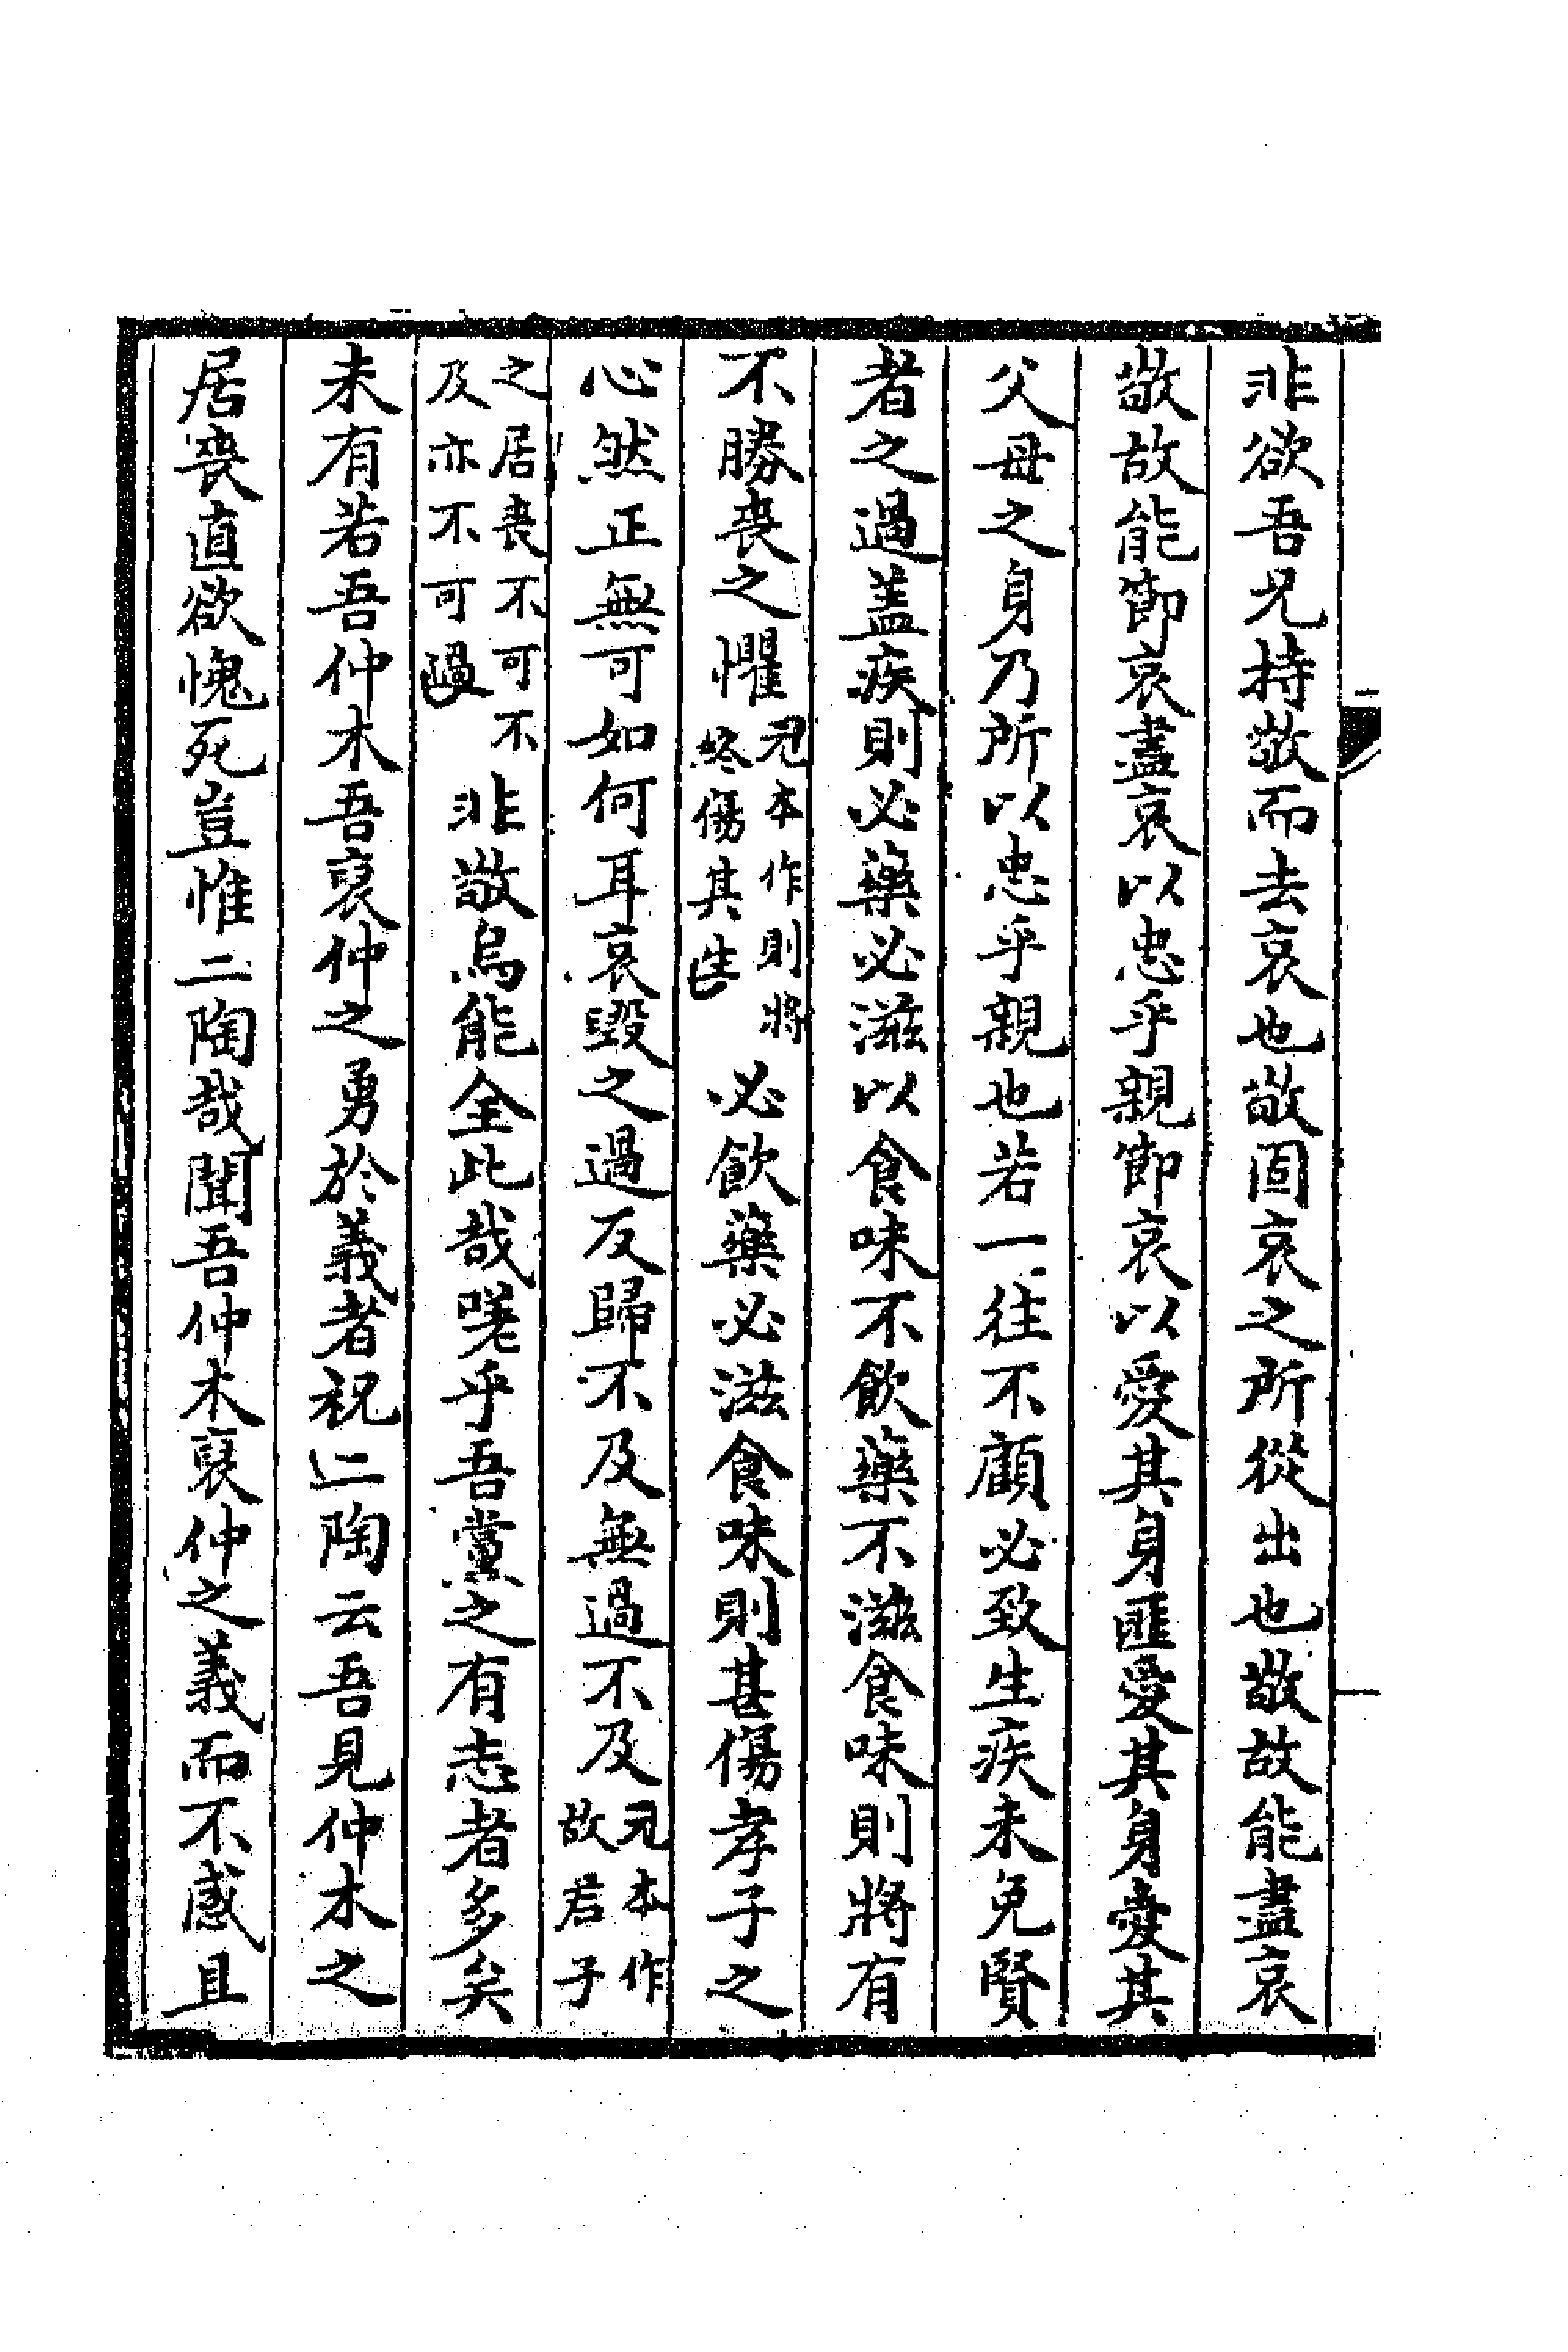 非欲吾兄持敬而去哀也敬固哀之所從出也敬故能盡哀
敬故能節哀盡哀以忠乎親節哀以愛其身匪愛其身愛其
父母之身乃所以忠乎親也若一往不顧必致生疾未免賢
者之過蓋疾則必藥必滋以食味不飲藥不滋食味則將有
不勝喪之懼兄本作則將終傷其生必飲藥必滋食味則甚傷孝子之
心然正無可如何耳哀毀之過反歸不及無過不及兄本作故君子
之居喪不可不及亦不可過非敬烏能全此哉嗟乎吾黨之有志者多矣
未有若吾仲木吾裒仲之勇於義者祝二陶云吾見仲木之
居喪直欲愧死豈惟二陶哉聞吾仲木裒仲之義而不感且